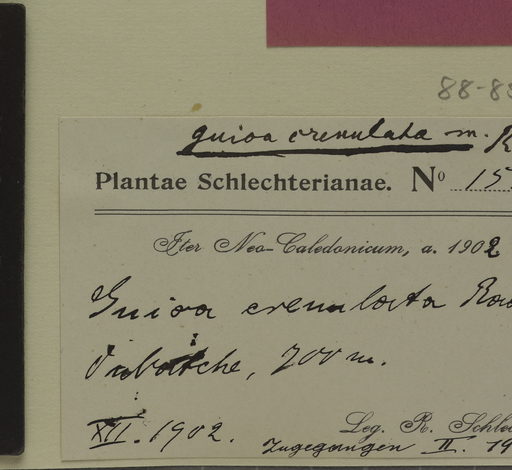 88-8
Guioa crenulata m. R
Plantae Schlechterianae. Nº 15
Iter Neo-Caledonicum, a. 1902
Guioa crenulata Ra
, 700 m.
XII. 1902.
Leg. R. Schle
Zugegangen II. 19